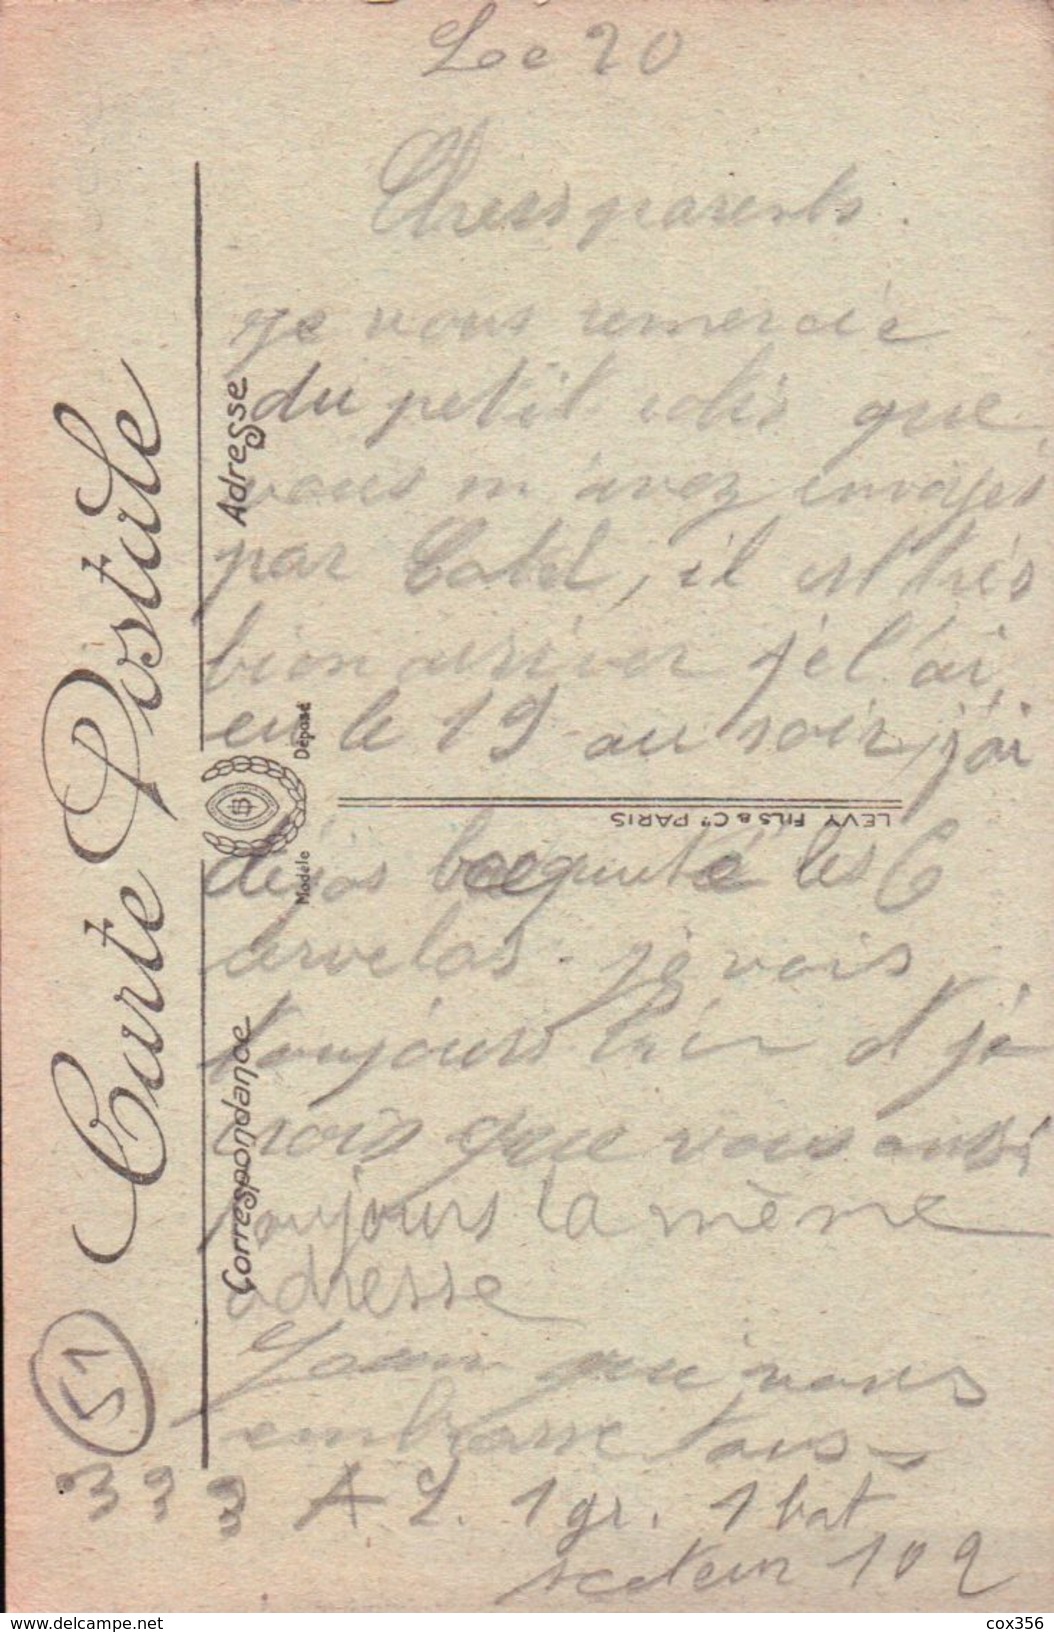 Le 20
Chers parents.
je vous remercie
du petit colis que
vous m'avez envoyés
par, il est très
bien arriver je l'ai
eu le 19 au soir, j'ai
déjas les 6
cervelas. je vais
toujours bien et je
crois que vous aussi
toujours la même
adresse
Jean qui vous
embrasse tous
333 A L. 1 gr. 1 bat
secteur 102
Carte Postale
Correspondance
Adresse
Modèle Déposé
LEVY FILS & Cie PARIS
51
delcampe.net
cox356